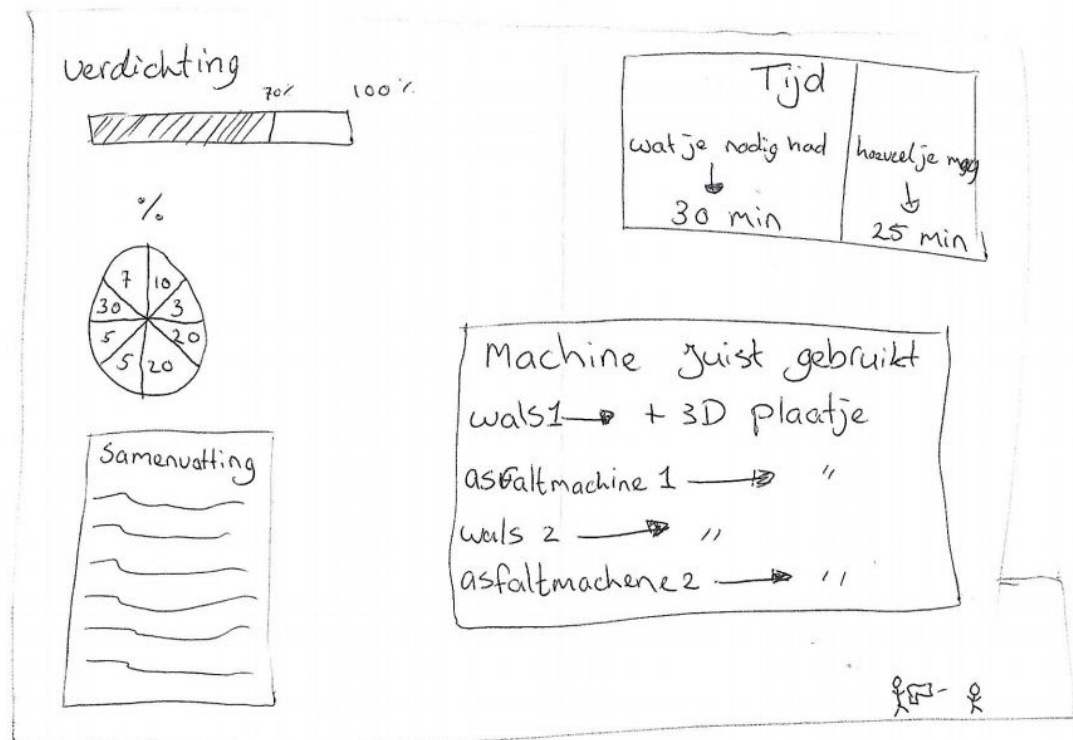 verdichting
70% 100%
%
7 10
30 3
5 20
5 20
Samenvatting
Tijd
wat je nodig had
30 min
hoeveel je mag
25 min
Machine Juist gebruikt
wals 1 + 3D plaatje
asfaltmachine 1 "
wals 2 "
asfaltmachene 2 "